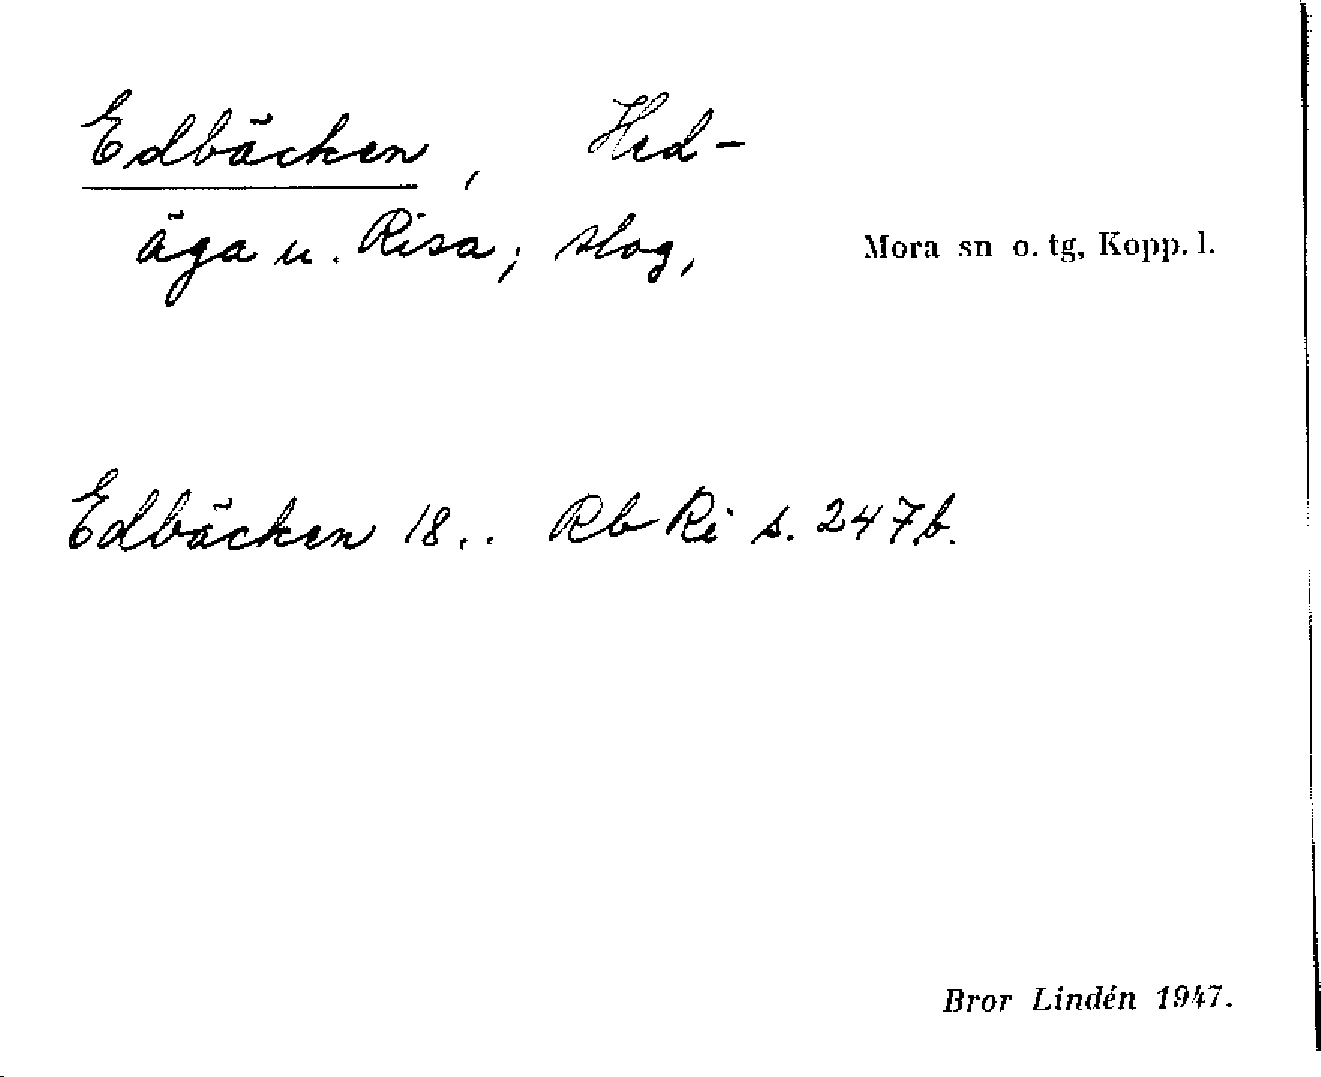 Edbäcken, Hed-
äga u. Risa; skog,
Mora sn o. tg, Kopp. l.
Edbäcken 18.. Rb Ri s. 247b.
Bror Lindén 1947.